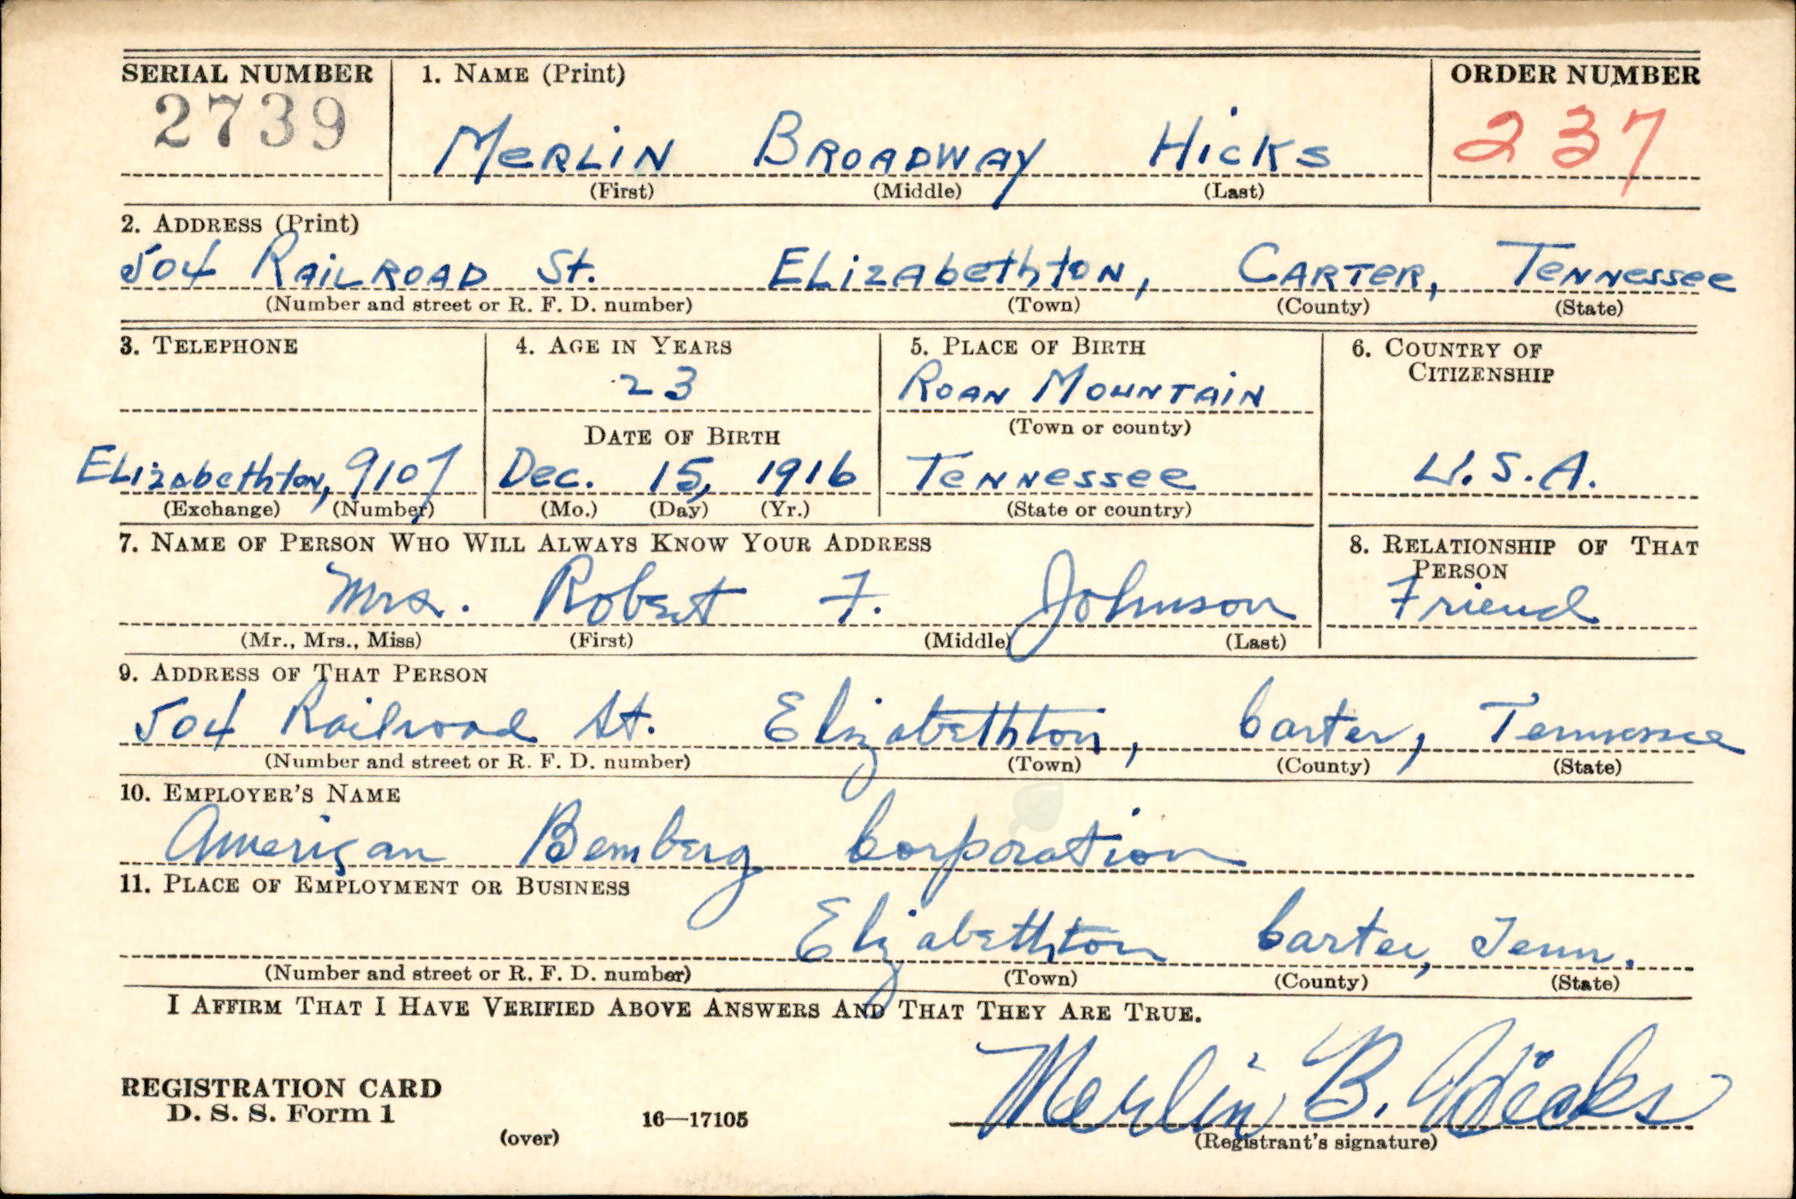 SERIAL NUMBER 1. NAME (Print) ORDER NUMBER
2739 MERLIN BROADWAY HICKS 237
(First) (Middle) (Last)
2. ADDRESS (Print)
504 RAILROAD St. ELizAbethtoN, CARTER, TENNessee
(Number and street or R. F. D. number) (Town) (County) (State)
3. TELEPHONE 4. AGE IN YEARS 5. PLACE OF BIRTH 6. COUNTRY OF CITIZENSHIP
23 ROAN MOUNTAIN
DATE OF BIRTH (Town or county)
ELizabethton, 9107 Dec. 15, 1916 TENNessee U.S.A.
(Exchange) (Number) (Mo.) (Day) (Yr.) (State or country)
7. NAME OF PERSON WHO WILL ALWAYS KNOW YOUR ADDRESS 8. RELATIONSHIP OF THAT PERSON
Mrs. Robert F. Johnson Friend
(Mr., Mrs., Miss) (First) (Middle) (Last)
9. ADDRESS OF THAT PERSON
504 Railroad St. Elizabethton, Carter, Tennessee
(Number and street or R. F. D. number) (Town) (County) (State)
10. EMPLOYER'S NAME
American Bemberg Corporation
11. PLACE OF EMPLOYMENT OR BUSINESS
Elizabethton Carter, Tenn.
(Number and street or R. F. D. number) (Town) (County) (State)
I AFFIRM THAT I HAVE VERIFIED ABOVE ANSWERS AND THAT THEY ARE TRUE.
REGISTRATION CARD
D. S. S. Form 1 16—17105 Merlin B. Hicks
(over) (Registrant's signature)